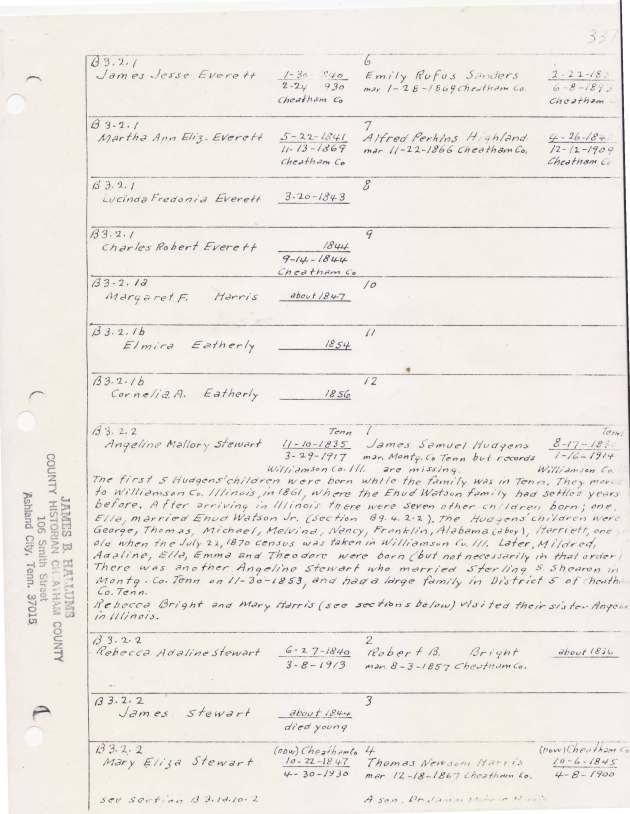 331
B3.2.1 6
James Jesse Everett 1-30 Emily Rufus Sanders 2-22-18
2-24 930 mar 1-28-1869 Cheatham Co. 6-8-189
Cheatham Co Cheatham
B 3-2.1 7
Martha Ann Eliz. Everett 5-22-1841 Alfred Perkins Highland 4-26-184
11-13-1869 mar 11-22-1866 Cheatham Co. 12-12-1909
Cheatham Co Cheatham C
B 3.2.1 8
Lucinda Fredonia Everett 3-20-1843
B3.2.1 9
Charles Robert Everett 1844
9-14-1844
Cheatham Co
B3-2.1a 10
Margaret F. Harris about 1847
B3.2.1b 11
Elmira Eatherly 1854
B3-2-1b 12
Cornelia A. Eatherly 1856
B3.2.2 Tenn 1 Tenn
Angeline Mallory Stewart 11-10-1835 James Samuel Hudgens 8-17-18
3-29-1917 mar. Montg. Co Tenn but records 1-16-1914
Williamson Co. Ill. are missing. Williamson Co.
The first 5 Hudgens' children were born while the family was in Tenn. They moved
to Williamson Co. Illinois, in 1861, where the Enud Watson family had settled years
before. After arriving in Illinois there were seven other children born; one,
Ella, married Enud Watson Jr. (section B9.4.2-2). The Hudgens children were
George, Thomas, Michael, Melvina, Nancy, Franklin, Alabama (a boy), Harriett, one
ale when the July 22, 1870 census was taken in Williamson Co. Ill. Later, Mildred,
Adaline, Ella, Emma and Theodore were born (but not necessarily in that order)
There was another Angeline Stewart who married Sterling S Shearon in
Montg. Co. Tenn on 11-30-1853, and had a large family in District 5 of Cheatham
Co. Tenn.
Rebecca Bright and Mary Harris (see sections below) visited their sister Angeline
in Illinois.
B3.2.2 2
Rebecca Adaline Stewart 6-27-1840 Robert B. Bright about 1836
3-8-1913 mar. 8-3-1857 Cheatham Co.
B3.2.2 3
James Stewart about 1844
died young
B3.2.2 (now) Cheatham Co 4 (now) Cheatham Co
Mary Eliza Stewart 10-22-1847 Thomas Newsom Harris 10-6-1845
4-30-1930 mar 12-18-1867 Cheatham Co. 4-8-1900
see section B 3.1d.10-2 A son, Dr. James
JAMES B. HALLUMS
COUNTY HISTORIAN CHEATHAM COUNTY
106 Smith Street
Ashland City, Tenn. 37015